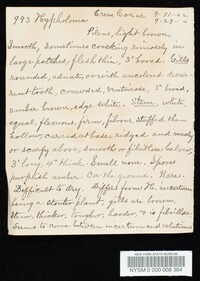 993 Hypholoma Crow Corner 9-21-02
9-29-0
Pileus, light brown.
Smooth, sometimes cracking remisely in
large patches, flesh thin, 3' broad. Gills
rounded, adnate, or with uncolored decur-
rent tooth, crowded, ventricose, 3' broad,
umber brown, edge white. Stem, white,
equal, flexuous, firm, fibrous, stuffed then
hollow, curved at base, ridged and mealy
or scurfy above, smooth or fibrillose below,
3' long, 4" thick. Smell none. Spores
purplish umber. On the ground. Rare.
Difficult to dry. Differs from H. incertum
being a stouter plant; gills are brown,
stem, thicker, tougher, harder, & is fibrillose.
Seems to come between incertum and
NEW YORK STATE MUSEUM
NYSM 0 000 008 364